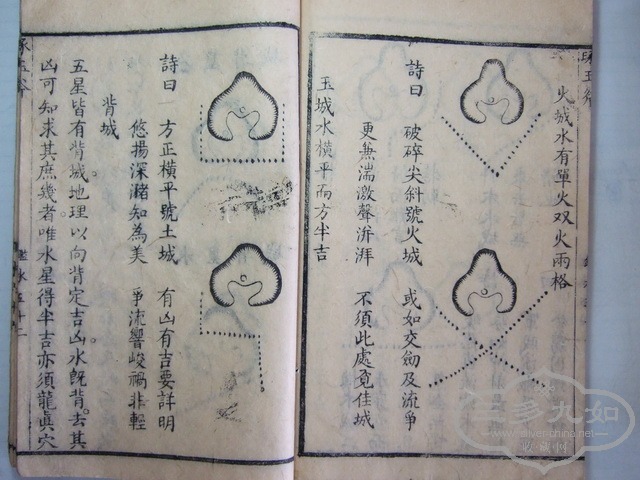 火城水有單火双火兩格
詩曰 破碎尖斜號火城 或如交劒及流爭
更無湍激聲洴湃 不須此處覓佳城
玉城水橫平而方半吉
詩曰 方正橫平號土城 有凶有吉要詳明
悠揚深瀦知為美 爭流響峻禍非輕
背城
五星皆有背城地理以向背定吉凶水既背去其
凶可知求其庶幾者唯水星得半吉亦須龍眞穴
三多九如
www.silvenchina.net
收藏网